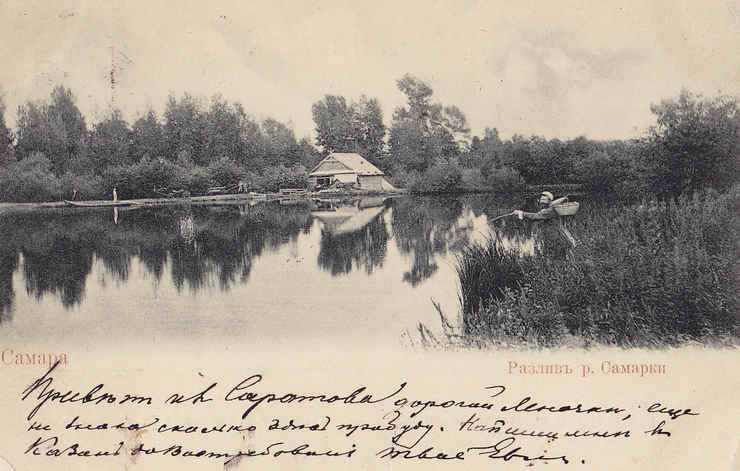 Самара
Разливъ р. Самарки
Привѣтъ изъ Саратова дорогой Леночки, еще
не знаю сколько здѣсь пробуду. Напиши мнѣ въ
Казань до Востребованія твоя